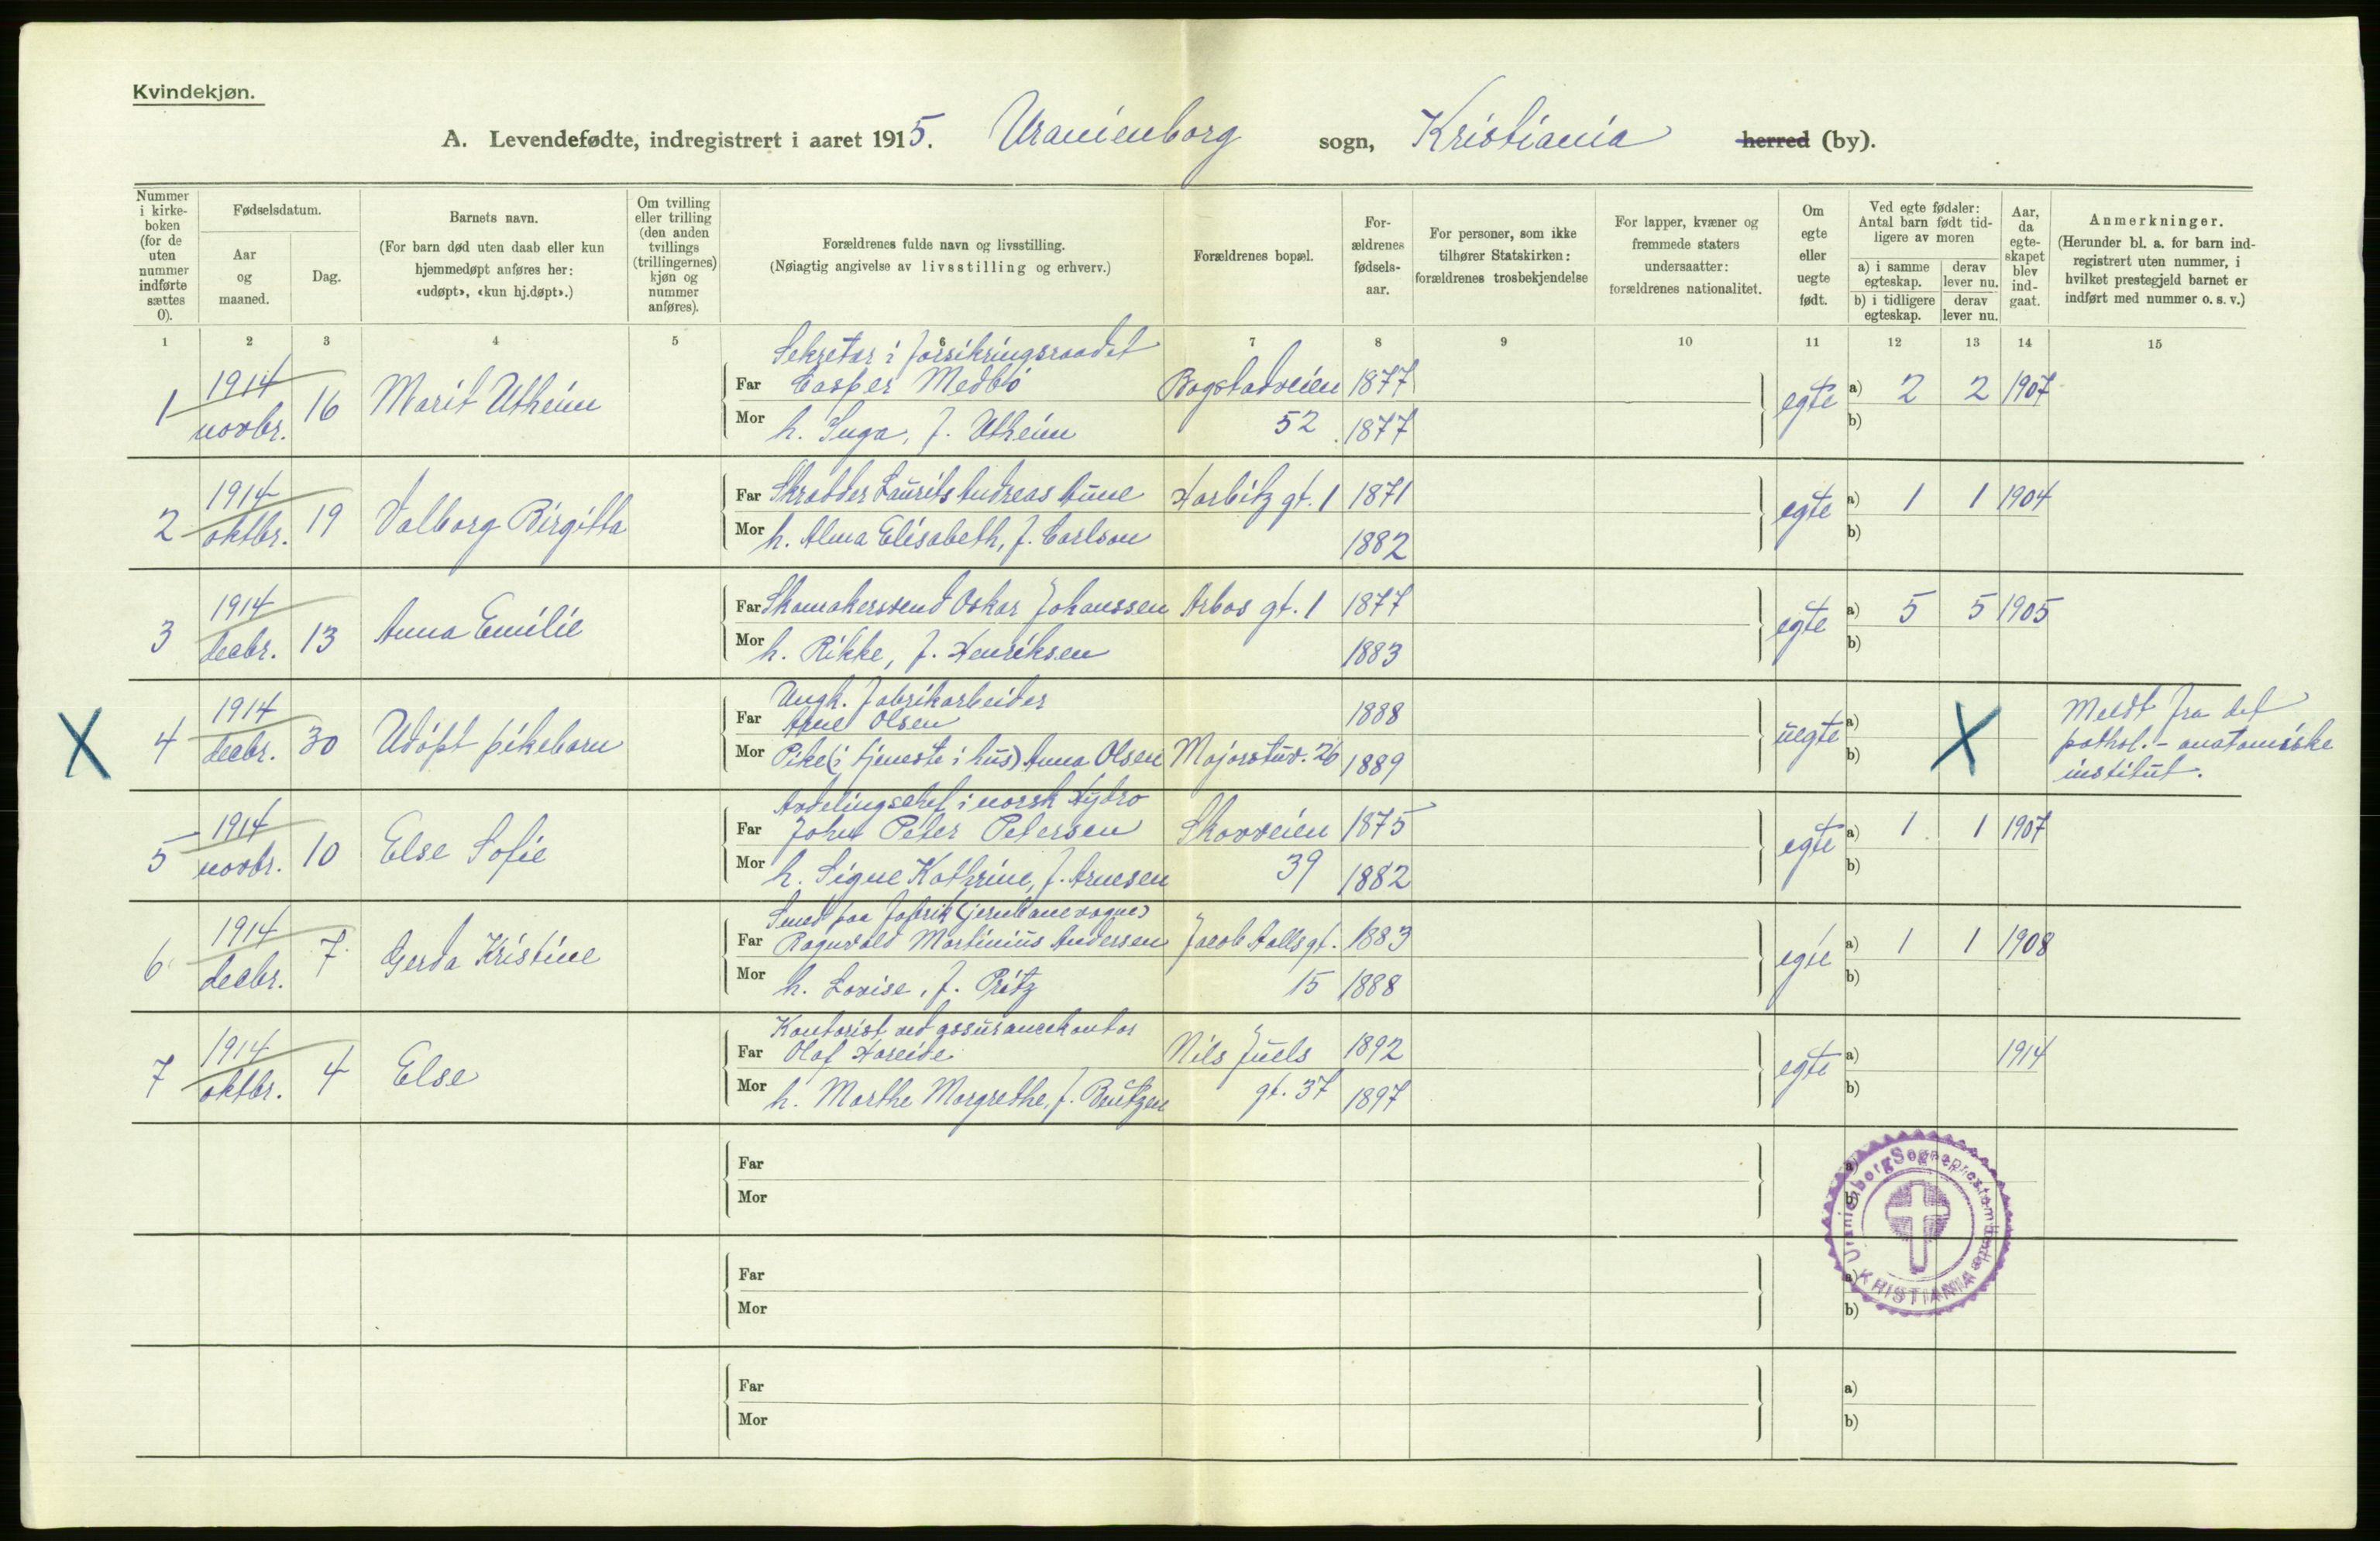 Kvindekjøn.
A. Levendefødte, indregistrert i aaret 1915. Uranienborg sogn, Kristiania herred (by).
Nummer i kirke-boken (for de uten nummer indførte sættes 0).
Fødselsdatum.
Aar og maaned.
Dag.
Barnets navn.
(For barn død uten daab eller kun hjemmedøpt anføres her: «udøpt», «kun hj.døpt».)
Om tvilling eller trilling (den anden tvillings (trillingernes) kjøn og nummer anføres).
Forældrenes fulde navn og livsstilling.
(Nøiagtig angivelse av livsstilling og erhverv.)
Forældrenes bopæl.
For-ældrenes fødsels-aar.
For personer, som ikke tilhører Statskirken: forældrenes trosbekjendelse
For lapper, kvæner og fremmede staters undersaatter: forældrenes nationalitet.
Om egte eller uegte født.
Ved egte fødsler: Antal barn født tid-ligere av moren
a) i samme egteskap.
derav lever nu.
b) i tidligere egteskap.
derav lever nu.
Aar, da egte-skapet blev ind-gaat.
Anmerkninger.
(Herunder bl. a. for barn ind-registrert uten nummer, i hvilket prestegjeld barnet er indført med nummer o. s. v.)
1 2 3 4 5 6 7 8 9 10 11 12 13 14 15
Sekretær i forsikringsraadet
1 1914 novbr. 16 Marit Utheim Far Casper Medbö Bogstadveien 1877 egte a) 2 2 1907
Mor h. Inga, f. Utheim 52 1877 b)
2 1914 oktbr. 19 Valborg Birgitta Far Skrædder Laurits Andreas Aune Harbitz gt. 1 1871 egte a) 1 1 1904
Mor h. Alma Elisabeth, f. Carlson 1882 b)
3 1914 decbr. 13 Anna Emilie Far Skomakersvend Oskar Johanssen Arbos gt. 1 1877 egte a) 5 5 1905
Mor h. Rikke, f. Henriksen 1883 b)
Ungk. fabrikarbeider
X 4 1914 decbr. 30 Udöpt pikebarn Far Arne Olsen 1888 uegte a) X Meldt fra det
Mor Pike (i tjeneste i hus) Anna Olsen Majorstuv. 26 1889 b) pathol.-anatomiske
institut.
Avdelingschef i norsk Hydro
5 1914 novbr. 10 Else Sofie Far John Peter Petersen Skovveien 1875 egte a) 1 1 1907
Mor h. Signe Kathrine, f. Arnesen 39 1882 b)
Smed paa fabrik (jernbanevogne)
6 1914 decbr. 7 Gerda Kristine Far Ragnvald Martinius Andersen Jacob Aalls gt. 1883 egte a) 1 1 1908
Mor h. Lovise, f. Pritz 15 1888 b)
Kontorist ved assurancekontor
7 1914 oktbr. 4 Else Far Olaf Hareide Nils Juels 1892 egte a) 1914
Mor h. Marthe Margrethe, f. Bentzen gt. 37 1897 b)
Far a)
Mor b)
Uranienborg Sogneprestembede
KRISTIANIA
Far a)
Mor b)
Far a)
Mor b)